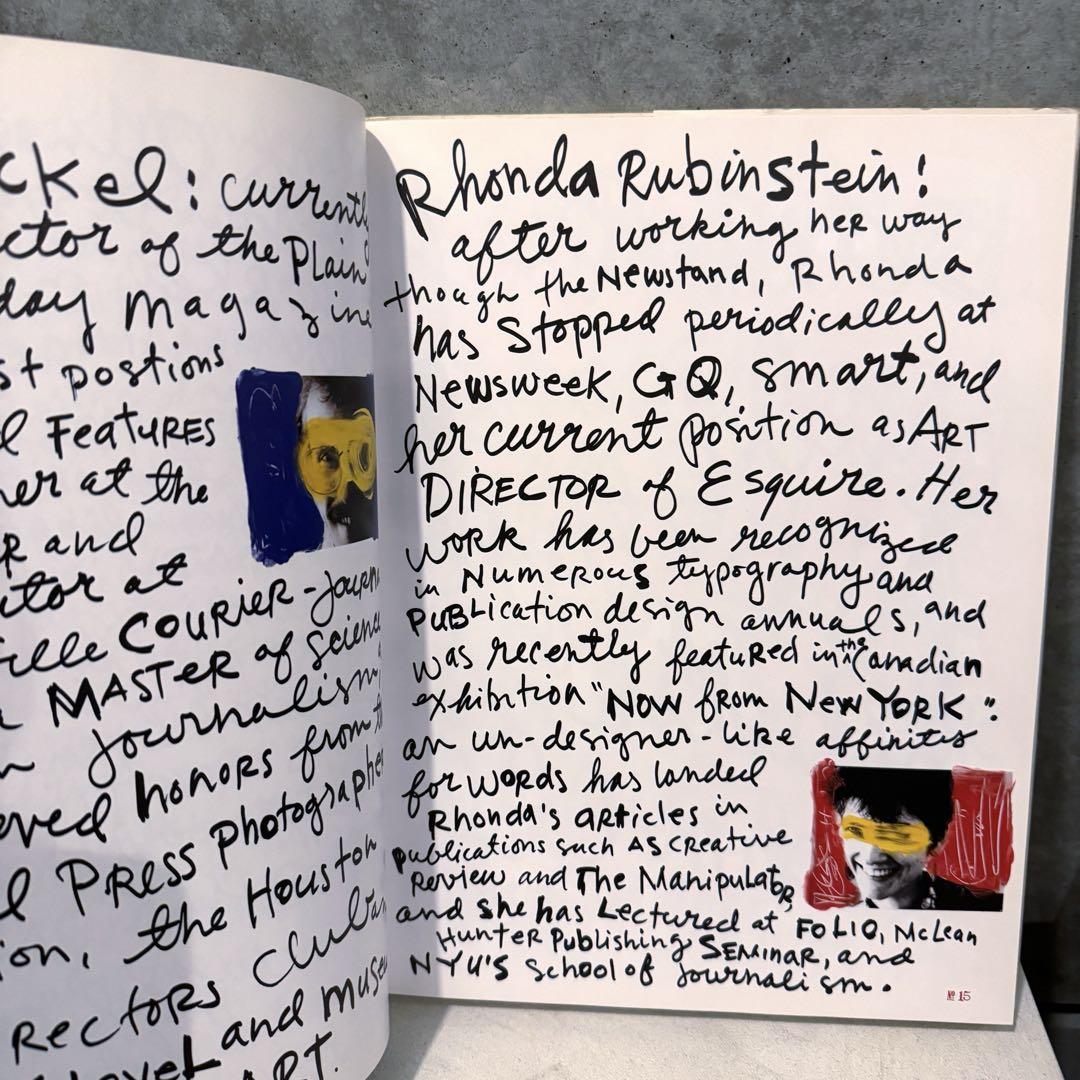 ckel: currently
ctor of the Plain
day magazine
st postions
l FEATURES
her at the
R and
itor at
ille COURIER-Journ
MASTER of Science
n journalism,
eved honors from th
l PRESS Photographe
ion, the Houston
RECTORS Club,
Lovel and muse
ART.
Rhonda Rubinstein!
after working her way
though the Newstand, Rhonda
has Stopped periodically at
Newsweek, GQ, smart, and
her current position as ART
DIRECTOR of Esquire. Her
work has been recognized
in Numerous typography and
PUBLication design annuals, and
was recently featured in the Canadian
exhibition "NOW from New YORK".
an un-designer-like affinity
for words has landed
Rhonda's articles in
publications such AS Creative
Review and The Manipulator,
and she has Lectured at FOLIO, McLean
Hunter Publishing SEMINAR, and
NYU'S School of Journalism.
№ 15